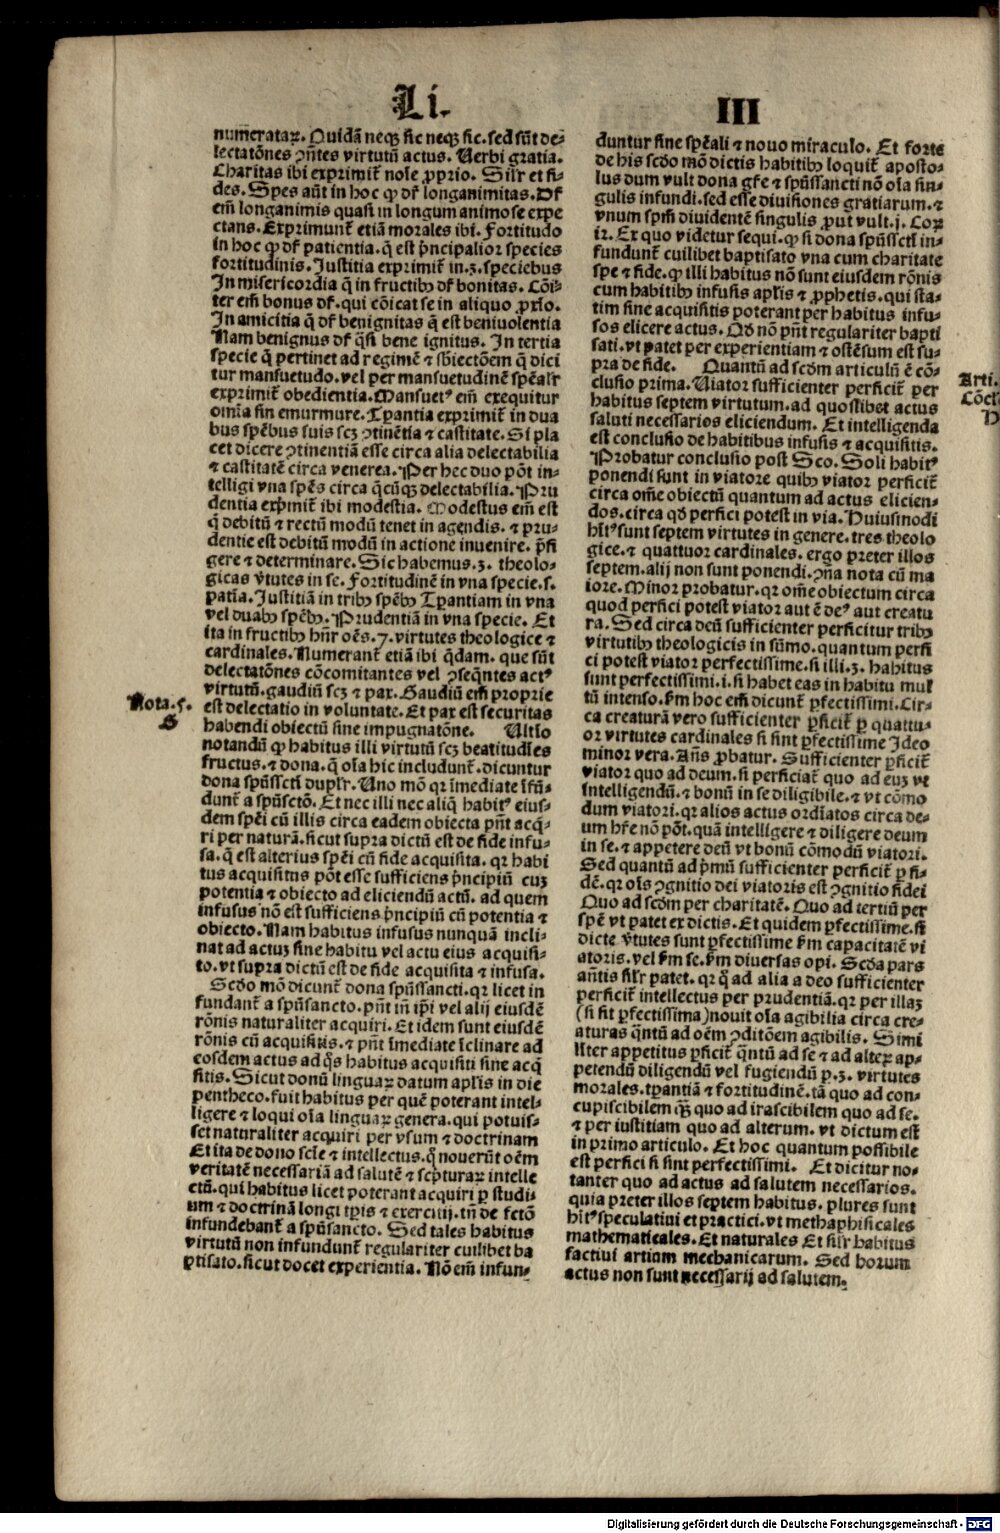 Li.
III
num̃erataꝝ. Quidã neqꝫ sic neqꝫ sic. sed sũt de-
lectatões ↄ̃ñtes virtutũ actus. Verbi gratia.
Charitas ibi exprimit᷑ nole ꝓprio. Silr̃ et fi-
des. Spes aũt in hoc ꝙ dr̃ longanimitas. Dr̃
em̃ longanimis quasi in longum animose expe
ctans. Exprimunt᷑ etiã morales ibi. Fortitudo
in hoc ꝙ dr̃ patientia. q̃ est p̃ncipalior species
fortitudinis. Justitia exprimit᷑ in .3. speciebus
In misericordia q̃ in fructibꝰ dr̃ bonitas. Cõi-
ter em̃ bonus dr̃. qui cõicat se in aliquo ꝓxĩo.
In amicitia q̃ dr̃ benignitas q̃ est beniuolentia
Nam benignus dr̃ q̃si bene ignitus. In tertia
specie q̃ pertinet ad regimẽ ⁊ sb̃iectõem q̃ dici
tur mansuetudo. vel per mansuetudinẽ spẽalr̃
exprimit᷑ obedientia. Mansuetꝰ em̃ exequitur
om̃ia sin emurmure. Tꝑantia exprimit᷑ in dua
bus spẽbus suis scꝫ ↄtinẽtia ⁊ castitate. Si pla
cet dicere ↄtinentiã esse circa alia delectabilia
⁊ castitatẽ circa venerea. Per hec duo põt in-
telligi vna spẽs circa q̃cũqꝫ delectabilia. Pru
dentia exp̃mit᷑ ibi modestia. Modestus em̃ est
q̃ debitũ ⁊ rectũ modũ tenet in agendis. ⁊ pru-
dentie est debitũ modũ in actione inuenire. p̃fi
gere ⁊ determinare. Sic habemus .3. theolo-
gicas v̓tutes in se. Fortitudinẽ in vna specie .s.
patiã. Justitiã in tribꝰ spẽbꝰ Tꝑantiam in vna
vel duabꝰ spẽbꝰ. Prudentiã in vna specie. Et
ita in fructibꝰ hñr oẽs .7. virtutes theologice ⁊
cardinales. Numerant᷑ etiã ibi q̃dam. que sũt
delectatões cõcomitantes vel ↄseq̃ntes actꝰ
virtutũ. gaudiũ scꝫ ⁊ pax. Gaudiũ em̃ proprie
Nota .5.
G
est delectatio in voluntate. Et pax est securitas
habendi obiectũ sine impugnatõne. Vltĩo
notandũ ꝙ habitus illi virtutũ scꝫ beatitudĩes
fructus. ⁊ dona. q̃ oĩa hic includunt᷑. dicuntur
dona spũssctĩ duplr̃. Uno mõ qꝛ ĩmediate ĩfũ-
dunt᷑ a spũsctõ. Et nec illi nec aliq̃ habitꝰ eius-
dem spẽi cũ illis circa eadem obiecta pñt acq̃-
ri per naturã. sicut supra dictũ est de fide infu-
sa. q̃ est alterius spẽi cũ fide acquisita. qꝛ habi
tus acquisitus põt esse sufficiens p̃ncipiũ cuꝫ
potentia ⁊ obiecto ad eliciendũ actũ. ad quem
infusus nõ est sufficiens p̃ncipiũ cũ potentia ⁊
obiecto. Nam habitus infusus nunquã incli-
nat ad actuꝫ sine habitu vel actu eius acquisi-
to. vt supra dictũ est de fide acquisita ⁊ infusa.
Scdo mõ dicunt᷑ dona spũssancti. qꝛ licet in
fundant᷑ a spũsancto. pñt tñ ip̃i vel alij eiusdẽ
rõnis naturaliter acquiri. Et idem sunt eiusdẽ
rõnis cũ acquisitis. ⁊ pñt ĩmediate ĩclinare ad
eosdem actus ad q̃s habitus acquisiti sine acq̃
sitis. Sicut donũ linguaꝝ datum apl̃is in die
pentheco. fuit habitus per quẽ poterant intel-
ligere ⁊ loqui oĩa linguaꝝ genera. qui potuis-
set naturaliter acquiri per vsum ⁊ doctrinam
Et ita de dono scĩe ⁊ intellectus. q̃ nouerũt oẽm
veritatẽ necessariã ad salutẽ ⁊ scṕturaꝝ intelle
ctũ. qui habitus licet poterant acquiri ꝑ studi-
um ⁊ doctrinã longi tꝑis ⁊ exercitij. tñ de fctõ
infundebant᷑ a spũsancto. Sed tales habitus
virtutũ non infundunt᷑ regulariter cuilibet ba
ptisato. sicut docet experientia. Nõ em̃ infun-
duntur sine spẽali ⁊ nouo miraculo. Et forte
de his scdo mõ dictis habitibꝰ loquit᷑ aposto-
lus dum vult dona gr̃e ⁊ spũssancti nõ oĩa sin-
gulis infundi. sed esse diuisiones gratiarum. ⁊
vnum spm̃ diuidentẽ singulis ꝓut vult .j. Coꝝ
ij. Ex quo videtur sequi. ꝙ si dona spũssctĩ in-
fundunt᷑ cuilibet baptisato vna cum charitate
spe ⁊ fide. ꝙ illi habitus nõ sunt eiusdem rõnis
cum habitibꝰ infusis apl̃is ⁊ ꝓphetis. qui sta-
tim sine acquisitis poterant per habitus infu-
sos elicere actus. Qd̃ nõ pñt regulariter bapti
sati. vt patet per experientiam ⁊ ostẽsum est su-
pra de fide. Quantũ ad scdm articulũ ẽ cõ-
Arti.
clusio prima. Viator sufficienter perficit᷑ per
Cõcl
habitus septem virtutum. ad quoslibet actus
D
saluti necessarios eliciendum. Et intelligenda
est conclusio de habitibus infusis ⁊ acquisitis.
Probatur conclusio post Sco. Soli habitꝰ
ponendi sunt in viatore quibꝰ viator perficit᷑
circa om̃e obiectũ quantum ad actus elicien-
dos. circa qd̃ perfici potest in via. Huiusmodi
hĩtꝰ sunt septem virtutes in genere. tres theolo
gice. ⁊ quattuor cardinales. ergo preter illos
septem. alij non sunt ponendi. ↄña nota cũ ma
iore. Minor probatur. qꝛ om̃e obiectum circa
quod perfici potest viator aut ẽ deꝰ aut creatu
ra. Sed circa deũ sufficienter perficitur tribꝰ
virtutibꝰ theologicis in sũmo. quantum perfi
ci potest viator perfectissime. si illi .3. habitus
sunt perfectissimi .i. si habet eas in habitu mul
tũ intenso. s̃m hoc em̃ dicunt᷑ ꝑfectissimi. Cir-
ca creaturã vero sufficienter ꝑficit᷑ ꝑ quattu-
or virtutes cardinales si sint ꝑfectissime Ideo
minor vera. Añs ꝓbatur. Sufficienter ꝑficit᷑
viator quo ad deum. si perficiat᷑ quo ad euꝫ vt
ĩntelligendũ. ⁊ bonũ in se diligibile. ⁊ vt cõmo
dum viatori. qꝛ alios actus ordĩatos circa de-
um hr̃e nõ põt. quã intelligere ⁊ diligere deum
in se. ⁊ appetere deũ vt bonũ cõmodũ viatori.
Sed quantũ ad p̃mũ sufficienter perficit᷑ ꝑ fi-
dẽ. qꝛ oĩs ↄgnitio dei viatoris est ↄgnitio fidei
Quo ad scdm per charitatẽ. Quo ad tertiũ per
spẽ vt patet ex dictis. Et quidem ꝑfectissime. si
dicte v̓tutes sunt ꝑfectissime s̃m capacitatẽ vi
atoris. vel s̃m se. s̃m diuersas opi. Scda pars
añtis silr̃ patet. qꝛ q̃ ad alia a deo sufficienter
perficit᷑ intellectus per prudentiã. qꝛ per illaꝫ
(si sit ꝑfectissima) nouit oĩa agibilia circa cre-
aturas q̃ntũ ad oẽm ↄditõem agibilis. Simi
liter appetitus ꝑficit᷑ q̃ntũ ad se ⁊ ad alteꝝ ap-
petendũ diligendũ vel fugiendũ ꝑ .3. virtutes
morales. tꝑantiã ⁊ fortitudinẽ. tã quo ad con-
cupiscibilem qꝫ̃ quo ad irascibilem quo ad se.
⁊ per iustitiam quo ad alterum. vt dictum est
in primo articulo. Et hoc quantum possibile
est perfici si sint perfectissimi. Et dicitur no-
tanter quo ad actus ad salutem necessarios.
quia preter illos septem habitus. plures sunt
hĩtꝰ speculatiui et practici. vt methaphisicales
mathematicales. Et naturales Et silr̃ habitus
factiui artium mechanicarum. Sed horum
actus non sunt necessarij ad salutem.
Digitalisierung gefördert durch die Deutsche Forschungsgemeinschaft - DFG